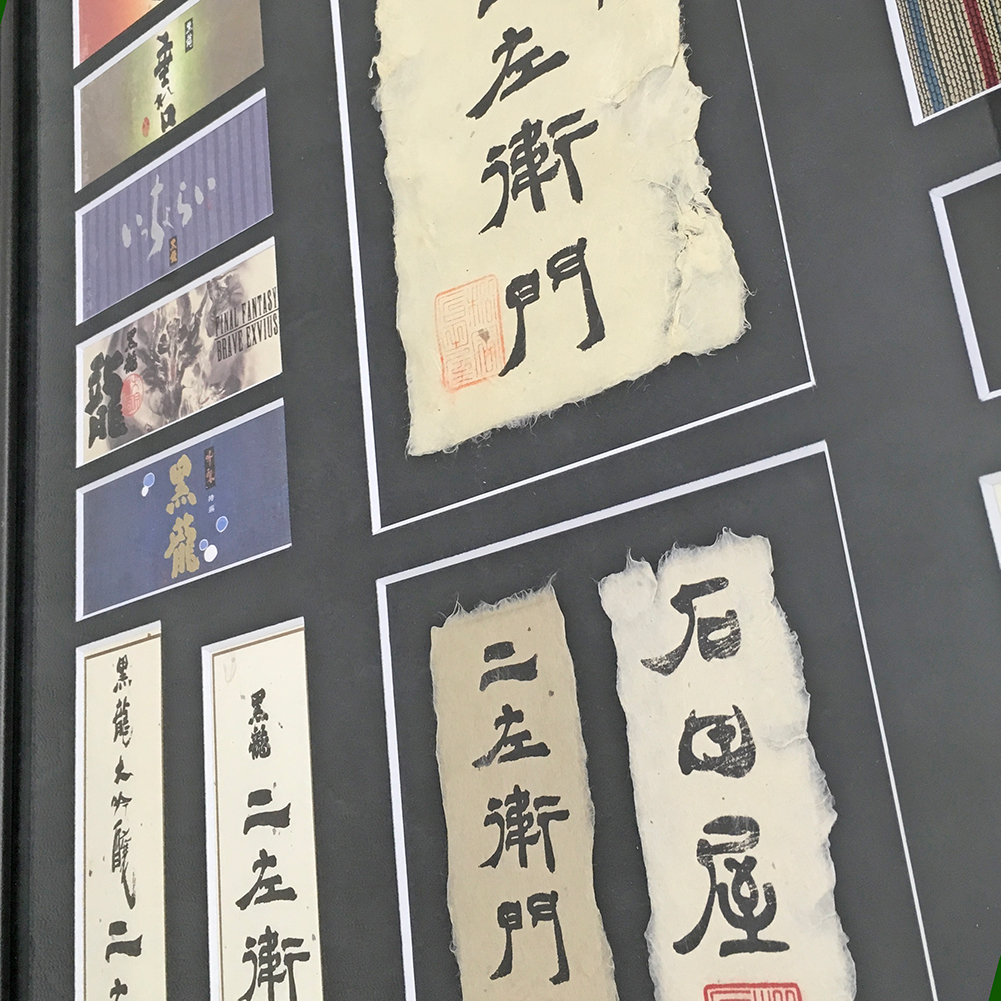 黒龍
垂れ口
いっちょらい
黒龍
黒龍
龍
FINAL FANTASY
BRAVE EXVIUS
吟醸
黒龍
左衛門
黒龍大吟醸
二
黒龍
二左衛
二左衛門
石田屋